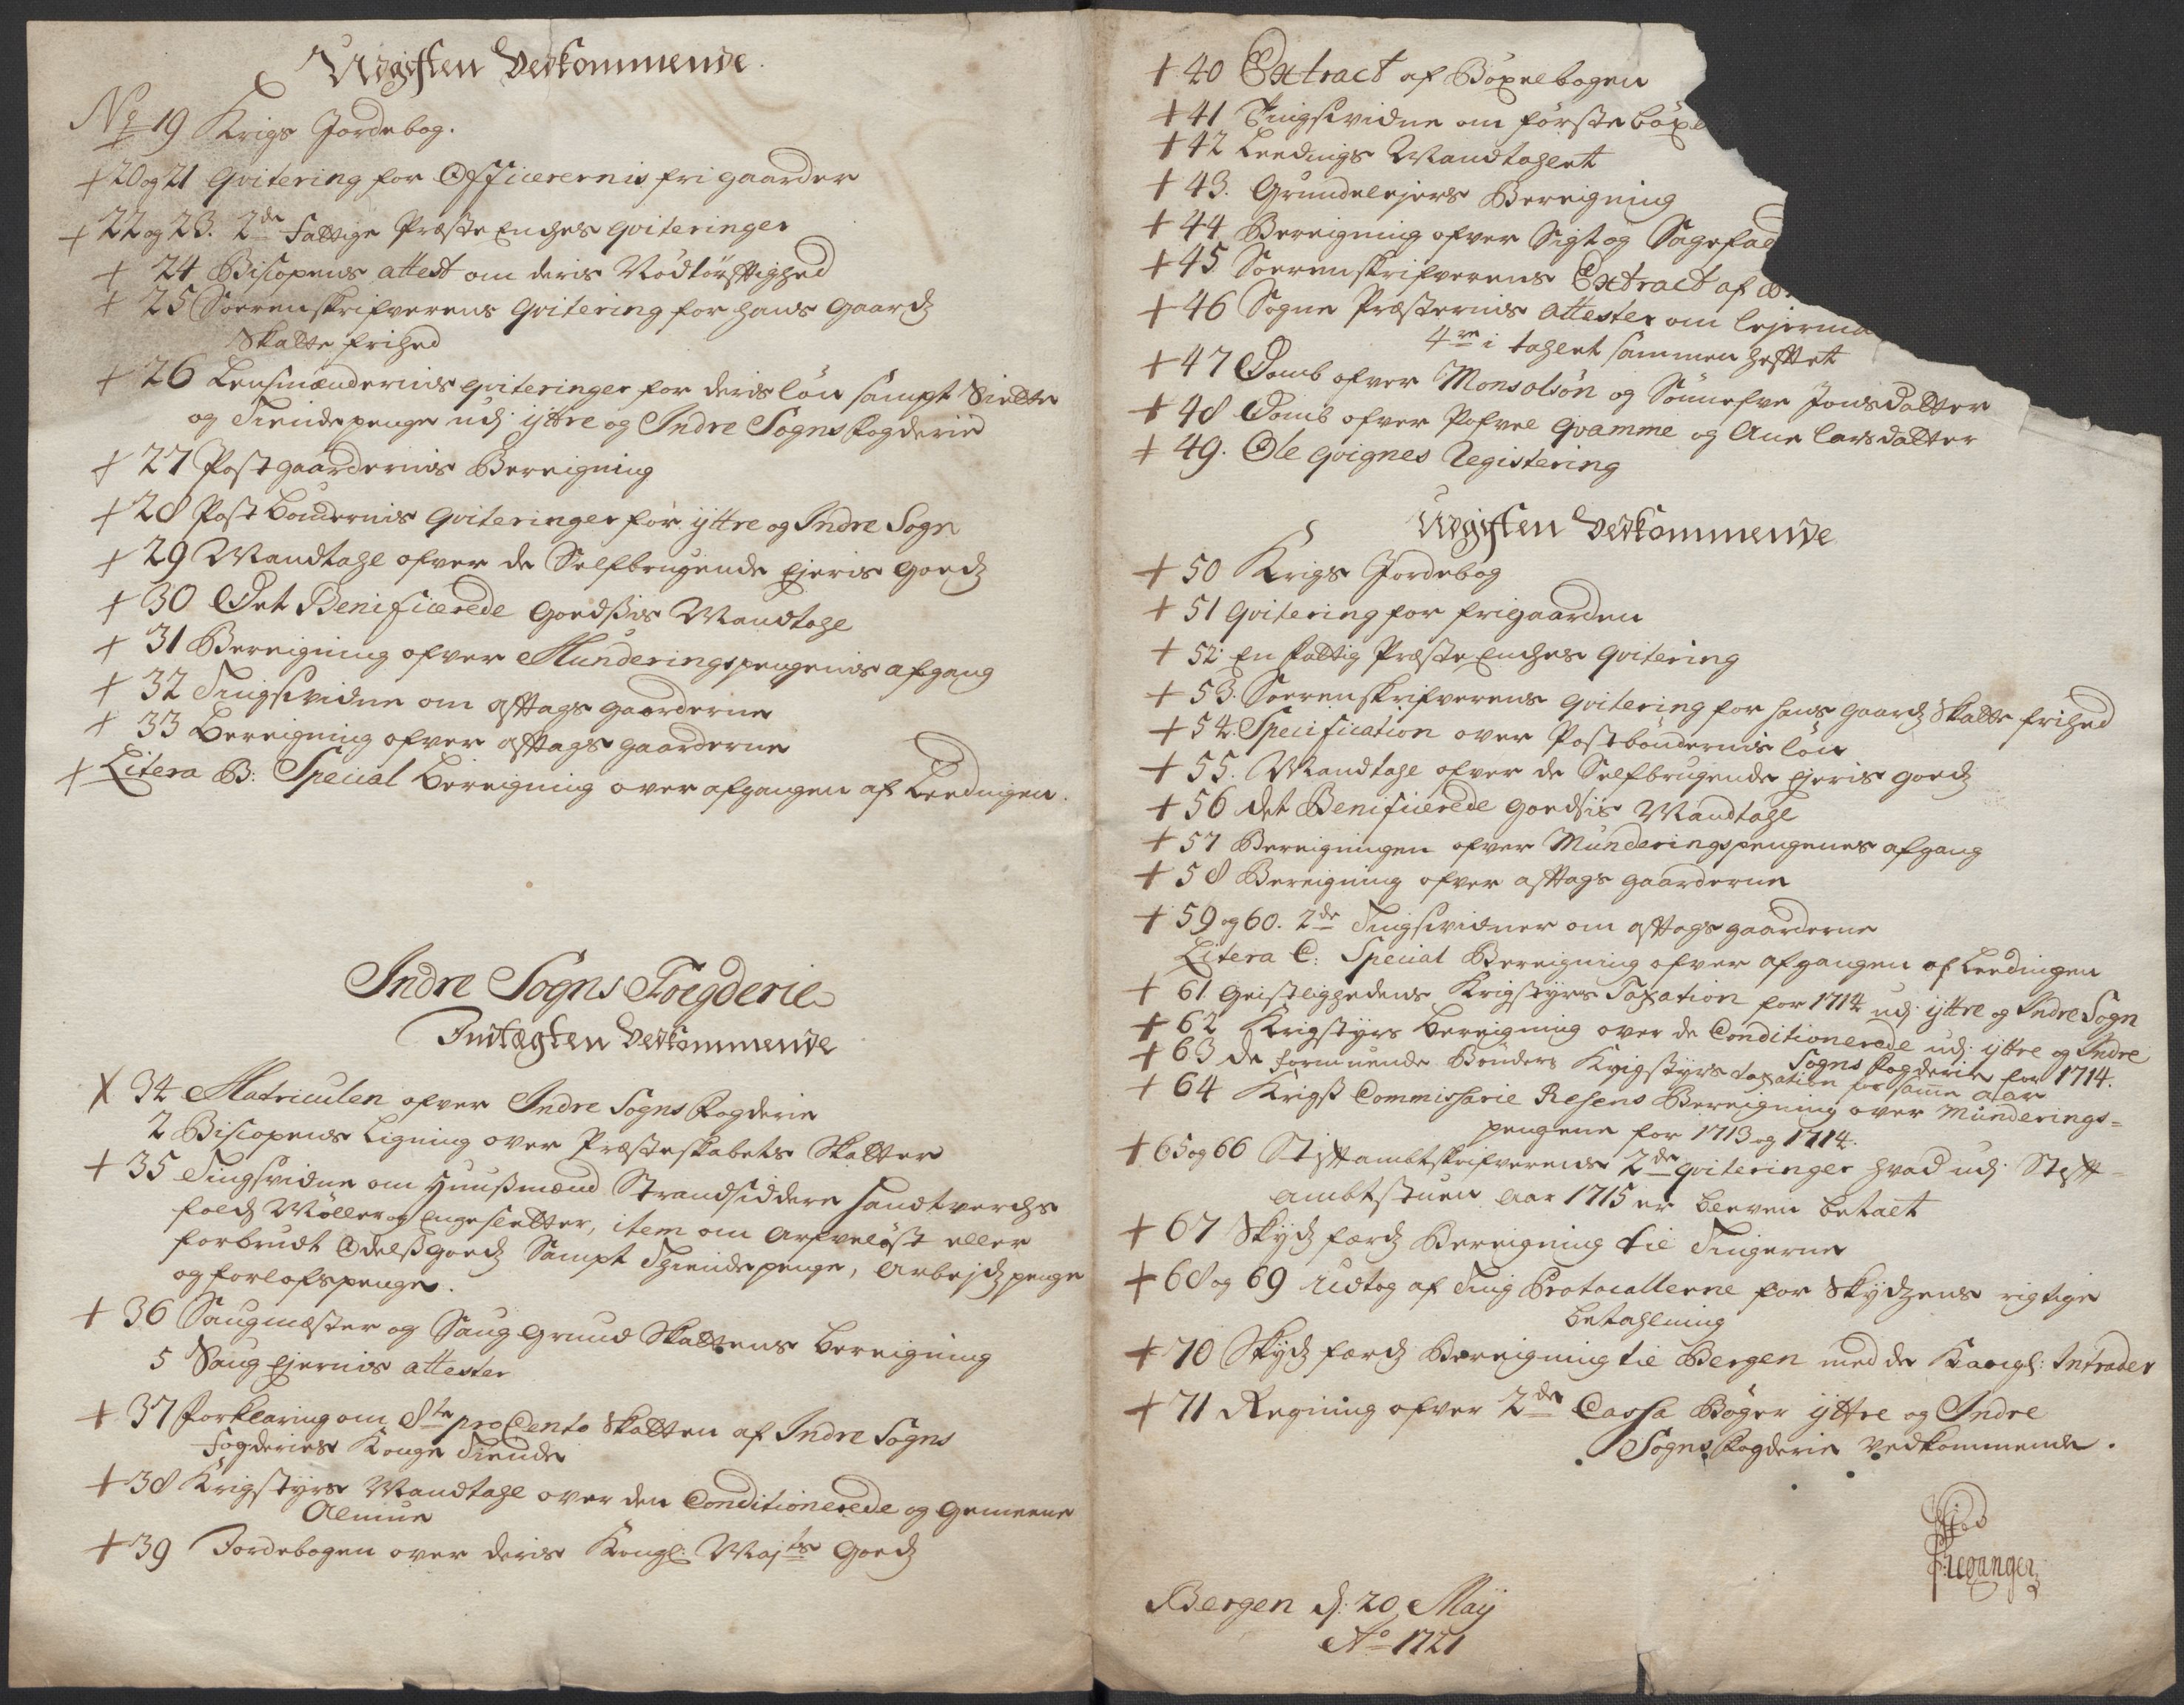 Udgiften Vedkommende.
No 19 Krigs Jordebog.
+ 20 og 21 Qvitering for Officerernis frigaarder
+ 22 og 23. 2de fattige Præste Enches qviteringer
+ 24 Biscopens attest om deris Nødtørfftighed
+ 25 Soerenskrifverens Qvitering for hans gaardz
Skatte frihed
+ 26 Lensmændernis qviteringer for deris løn sampt Siette
og Tiende penge udj yttre og Indre Sogns Fogderie
+ 27 Postgaardernis Bereigning
+ 28 Post bøndernis qviteringer for yttre og Indre Sogn
+ 29 Mandtahl ofver de Selfbrugende Ejeris goedz
+ 30 Det Benificerede Goedssis Mandtahl
+ 31 Bereigning ofver Munderingspengenis afgang
+ 32 Tingsvidne om afftags gaarderne
+ 33 Bereigning ofver afftags gaarderne
+ Litera B: Special bereigning over afgangen af Leedingen.
Indre Sogns Foegderie
Indtægten Vedkommende
X 34 Matriculen ofver Indre Sogns Fogderie
2 Biscopens Ligning over Præsteskabets Skatter
+ 35 Tingsvidne om Huussmænd Strandsiddere handtverchs
folch Møller og Engesletter, item om Arfveløst eller
forbrudt Odelssgoedz Sampt Thiende penge, Arbejdzpenge
og forlofspenge.
+ 36 Saugmæster og Saug grund Skattens bereigning
5 Saug Ejernis attester
+ 37 Forklaring om 8te pro Cento Skatten af Indre Sogns
Fogderies Konge Tiende
+ 38 Krigstyrs Mandtahl over den Conditionerede og gemeene
Almue
+ 39 Jordebogen over deris Kongl: Majts Goedz
+ 40 Extract af Böxelbogen
+ 41 Tingsvidne om første böxe
+ 42 Leedings Mandtahlet
+ 43. Grundelejers Bereigning
+ 44 Bereigning ofver Sigt og Sagefal
+ 45 Soerenskrifverens Extract af
+ 46 Sogne Præsternis attester om lejerma
4re i tahlet sammen hefftet
+ 47 Domb ofver Mons olsøn og Sønnefve Jonsdatter
+ 48 Domb ofver Pofvel Qvamme og Ane Larsdatter
+ 49. Ole Qvignes Registering
Udgifften Vedkommende
+ 50 Krigs Jordebog
+ 51 Qvitering for frigaarden
+ 52 En fattig Præste Enches Qvitering
+ 53. Soerenskrifverens qvitering for hans gaardz Skatte frihed
+ 54. Specification over Postbøndernis løn
+ 55. Mandtahl ofver de Selfbrugende Ejeris goedz
+ 56 det Benificerede goedsis Mandtahl
+ 57 Bereigningen ofver Munderingspengenes afgang
+ 58 Bereigning ofver afftags gaarderne
+ 59 og 60. 2de Tingsvidner om afftags gaarderne
Litera C: Special Bereigning ofver afgangen af Leedingen
+ 61 Geistlighedens Krigstyrs Taxation for 1714 udj yttre og Indre Sogn
+ 62 Krigstyrs bereigning over de Conditionerede udj yttre og Indre
Sogns Fogderie for 1714.
+ 63 de formuende Bønders Krigstyrs taxation for samme aar
+ 64 Krigs Commissarie Resens Bereigning over Munderings=
pengene for 1713 og 1714.
+ 65 og 66 Stifftambtskrifverens 2de qviteringer hvad udj Stifft-
ambtstuen aar 1715 er bleven betalt
+ 67 Skydz færdz Bereigning til Tingerne
+ 68 og 69 udtog af Ting Protocollerne for Skydzens rigtige
betahlning
+ 70 Skydz færdz Bereigning til Bergen med de Kongl: Intrader
+ 71 Regning ofver 2de Cassa Bøger yttre og Indre
Sogns Fogderie Vedkommende.
Bergen d: 20 Maij
Ao 1721